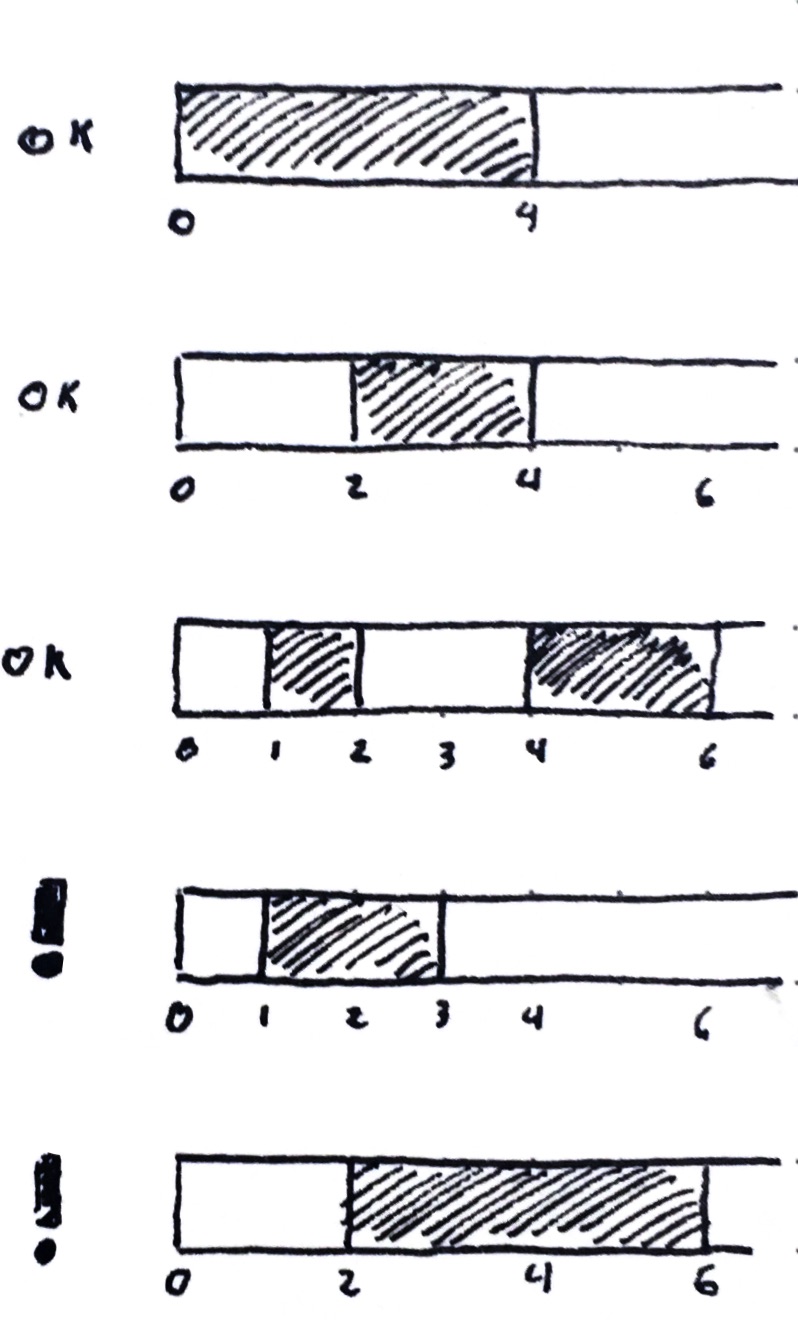 OK
0 4
OK
0 2 4 6
OK
0 1 2 3 4 6
!
0 1 2 3 4 6
!
0 2 4 6